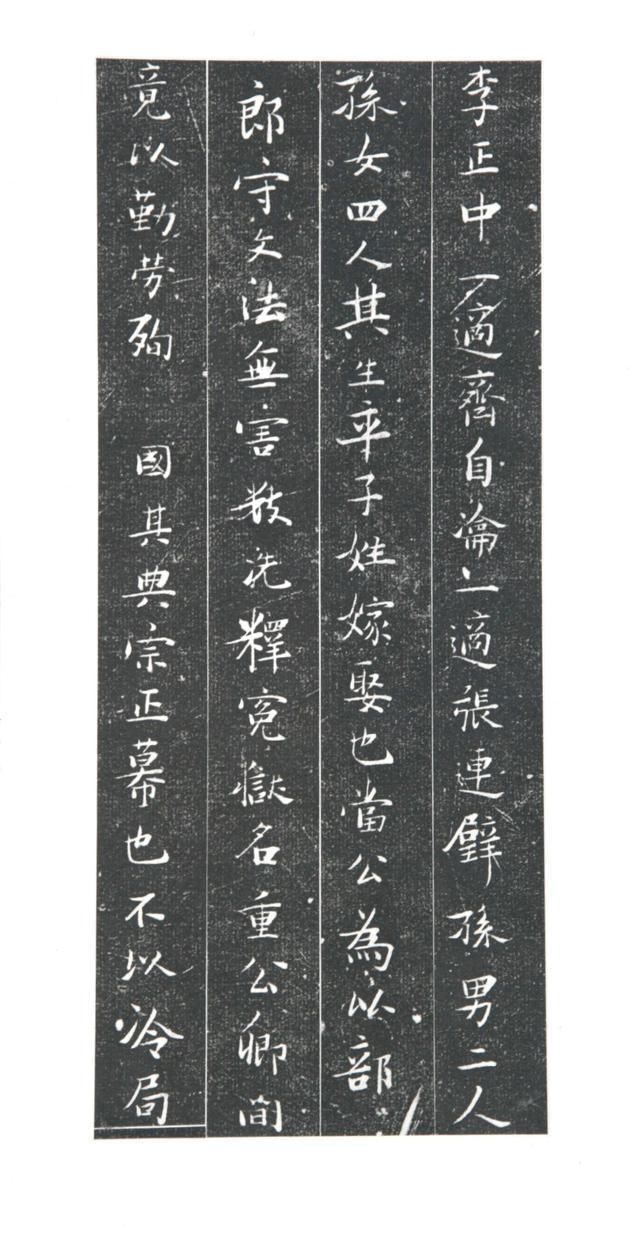 李正中一適齊自淪一適張連璧孫男二人
孫女四人其生卒子姓嫁娶也當公為比部
郎守文法無害數洗釋冤獄名重公卿間
竟以勤勞殉國其典宗正幕也不以冷局